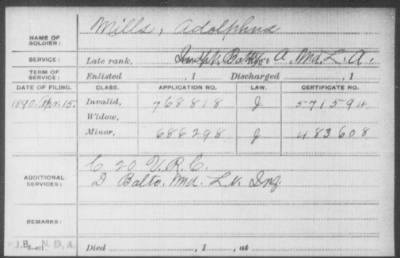 NAME OF SOLDIER: Mills, Adolphus
SERVICE: Late rank, Batty. A. Md. L. A.
TERM OF SERVICE: Enlisted , 1 Discharged , 1
DATE OF FILING. CLASS. APPLICATION NO. LAW. CERTIFICATE NO.
1890. Apr. 15. Invalid, 768818 J 571594
Widow,
Minor, 686298 J 483608
ADDITIONAL SERVICES: C 20 V.R.C.
D Balto. Md. L. V. Inf.
REMARKS:
N. D. A. Died , 1 , at